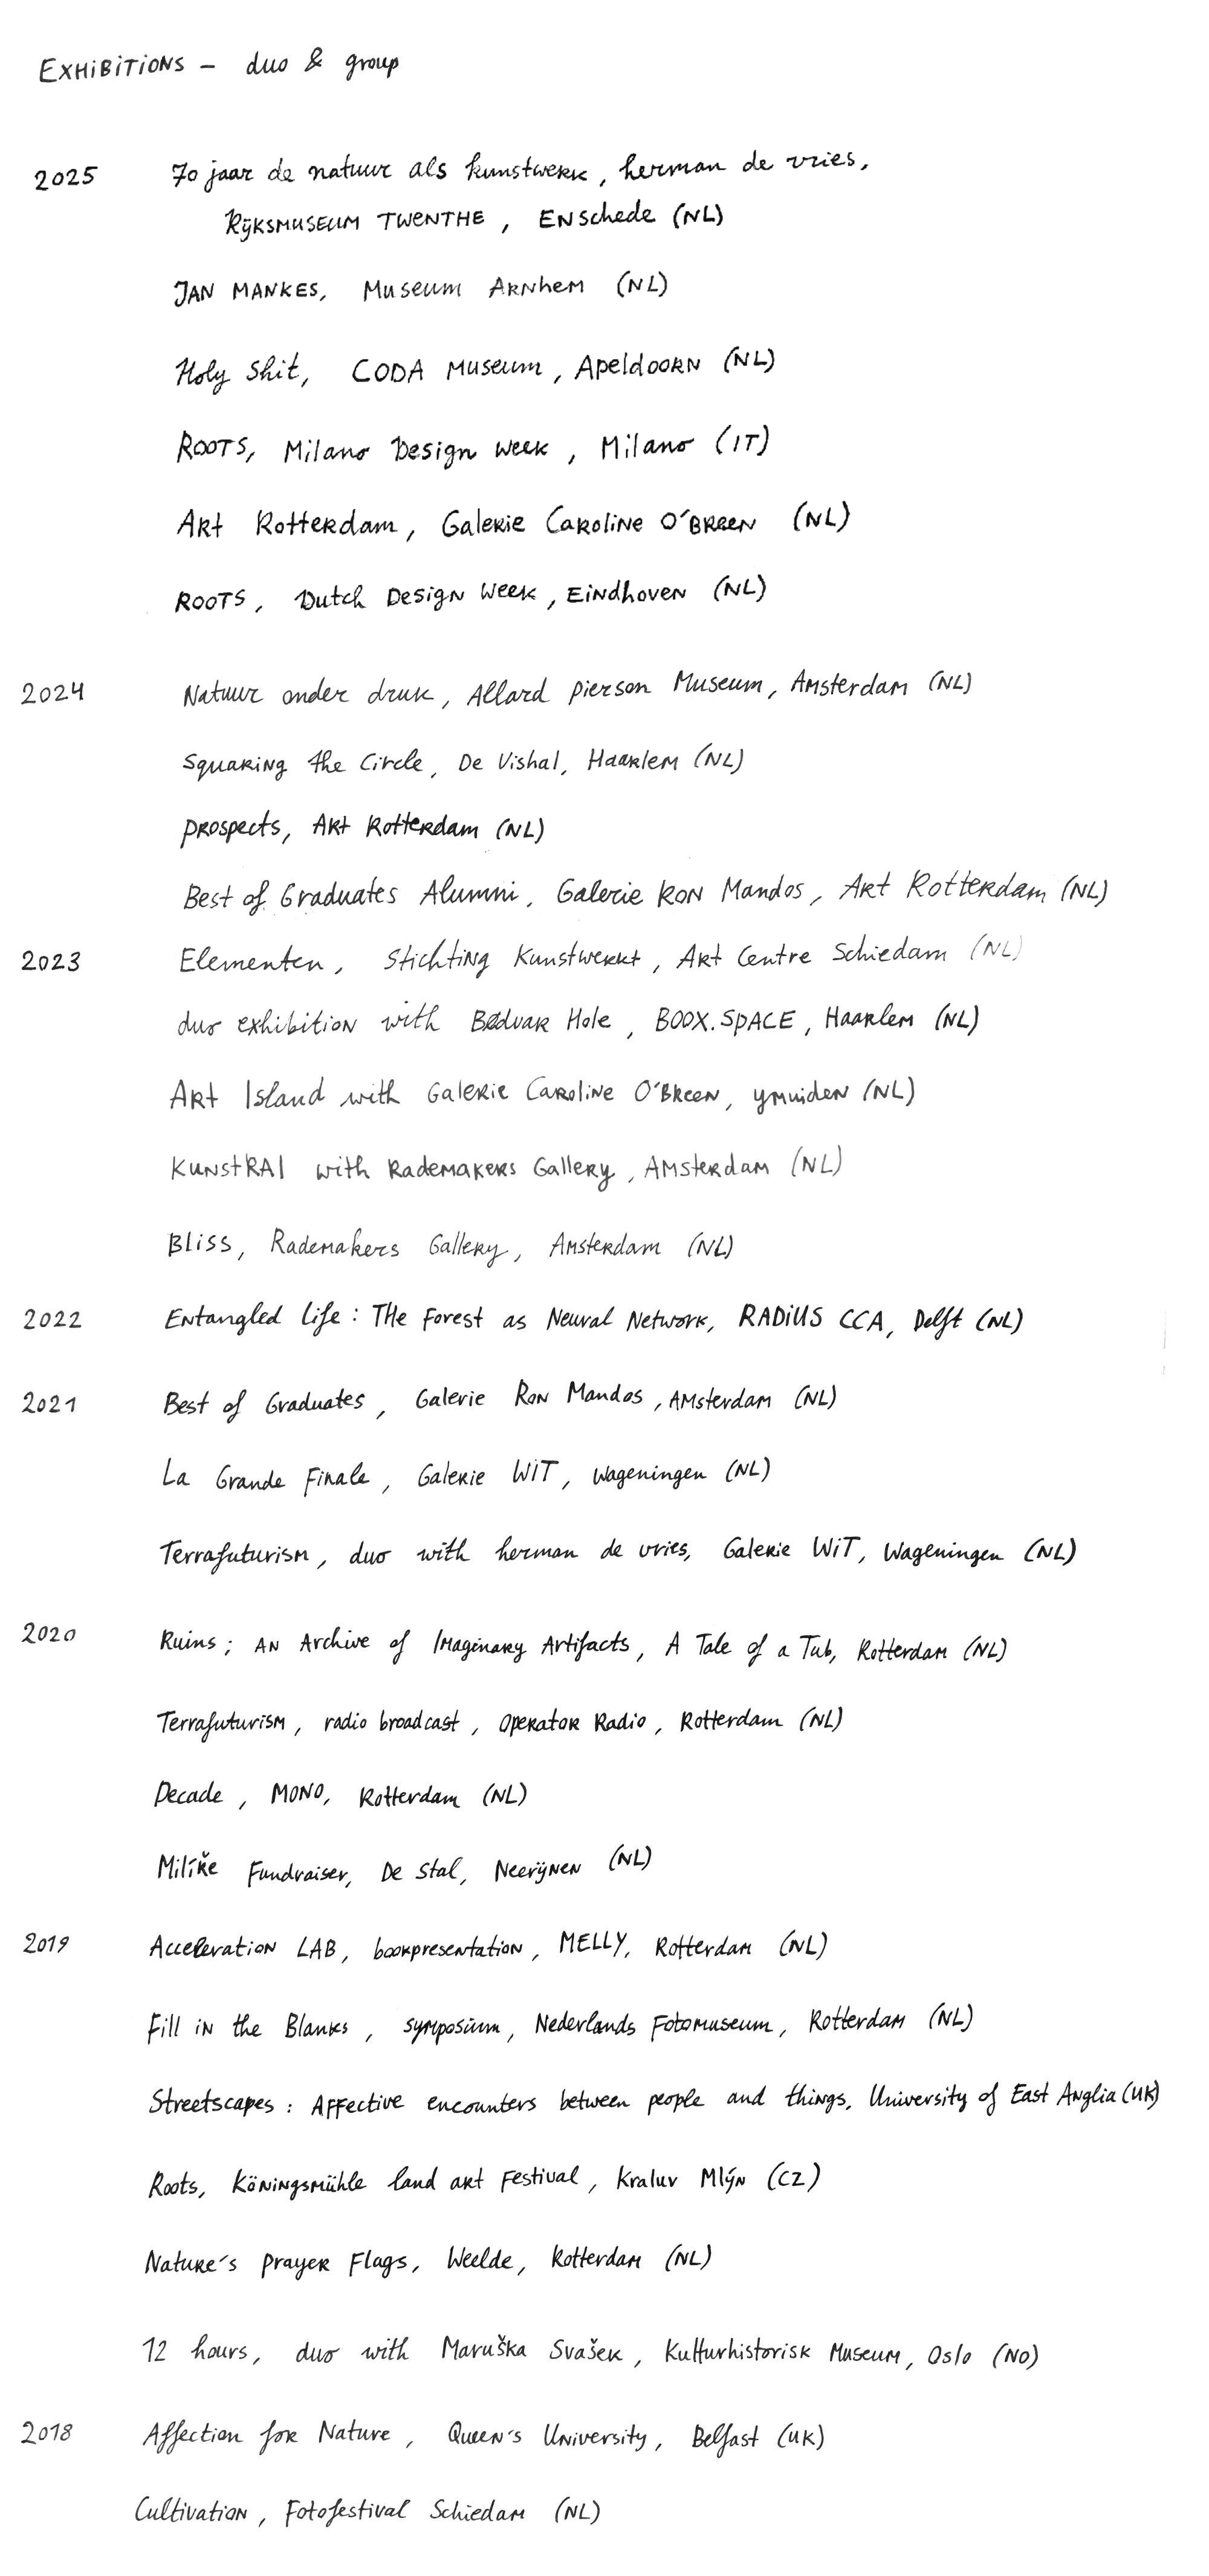 EXHiBiTiONS – duo & group
2025 70 jaar de natuur als kunstwerk, herman de vries,
RijKSMUSEUM TWENTHE, ENschede (NL)
JAN MANKES, Museum ARNhEM (NL)
Holy Shit, CODA Museum, ApeldOORN (NL)
ROOTS, Milano Design Week, Milano (IT)
ARt Rotterdam, Galerie Caroline O'BREEN (NL)
ROOTS, Dutch Design Week, Eindhoven (NL)
2024 Natuur onder druk, Allard Pierson Museum, Amsterdam (NL)
Squaring the Circle, De Vishal, Haarlem (NL)
Prospects, Art Rotterdam (NL)
Best of Graduates Alumni, Galerie Ron Mandos, Art Rotterdam (NL)
2023 Elementen, Stichting Kunstwerkt, Art Centre Schiedam (NL)
duo exhibition with Bødvar Hole, BOOX.SPACE, Haarlem (NL)
Art Island with Galerie Caroline O'Breen, ymuiden (NL)
KunstRAI with Rademakers Gallery, Amsterdam (NL)
Bliss, Rademakers Gallery, Amsterdam (NL)
2022 Entangled Life: The Forest as Neural Network, RADiUS CCA, Delft (NL)
2021 Best of Graduates, Galerie Ron Mandos, Amsterdam (NL)
La Grande Finale, Galerie WIT, Wageningen (NL)
Terrafuturism, duo with herman de vries, Galerie WiT, Wageningen (NL)
2020 Ruins; An Archive of Imaginary Artifacts, A Tale of a Tub, Rotterdam (NL)
Terrafuturism, radio broadcast, Operator Radio, Rotterdam (NL)
Decade, MONO, Rotterdam (NL)
Milíře Fundraiser, De Stal, Neerijnen (NL)
2019 Acceleration LAB, bookpresentation, MELLY, Rotterdam (NL)
Fill in the Blanks, symposium, Nederlands Fotomuseum, Rotterdam (NL)
Streetscapes: Affective encounters between people and things, University of East Anglia (UK)
Roots, Köningsmühle land art Festival, Kraluv Mlýn (CZ)
Nature's Prayer Flags, Weelde, Rotterdam (NL)
12 hours, duo with Maruška Svašek, Kulturhistorisk Museum, Oslo (NO)
2018 Affection for Nature, Queen's University, Belfast (UK)
Cultivation, Fotofestival Schiedam (NL)